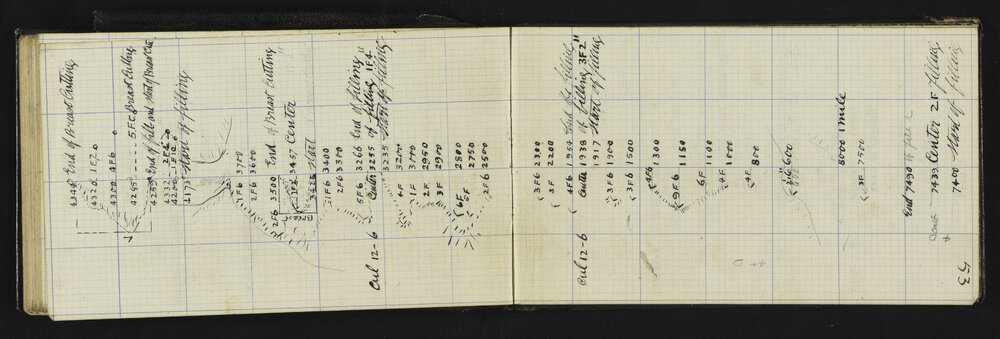 4340 End of Breast Cutting
4320 1E7.0
4300 4E6.0
4295 5.FC Breast Cutting
4285 End of fill and start of Breast Cut
4232 2E6
4200 E10.0
4173 Start of filling
2F6 3700
2F6 3600
2F6 3500 End of Breast Cutting"
1F4 3457 Center
Breast
Start
1F6 3400
2F6 3300
5F6 3266 End of filling"
Cul 12-6 Center 3255 of filling 1F4"
3235 Start of filling
3200
1F 3000
2F 2950
3F 2900
6F 2800
5F 2750
2F6 2500
3F6 2300
3F 2200
4F6 1954 End of filling
Cul 12-6 Center 1938 of filling 3F2"
1917 Start of filling
3F6 1900
3F6 1500
4F6 1300
9F6 1150
6F 1100
4F 1000
4F 800
600
8000 1 mile
3F 7500
End 7490 to fill
7439 Center 2F filling
7400 Start of filling
53